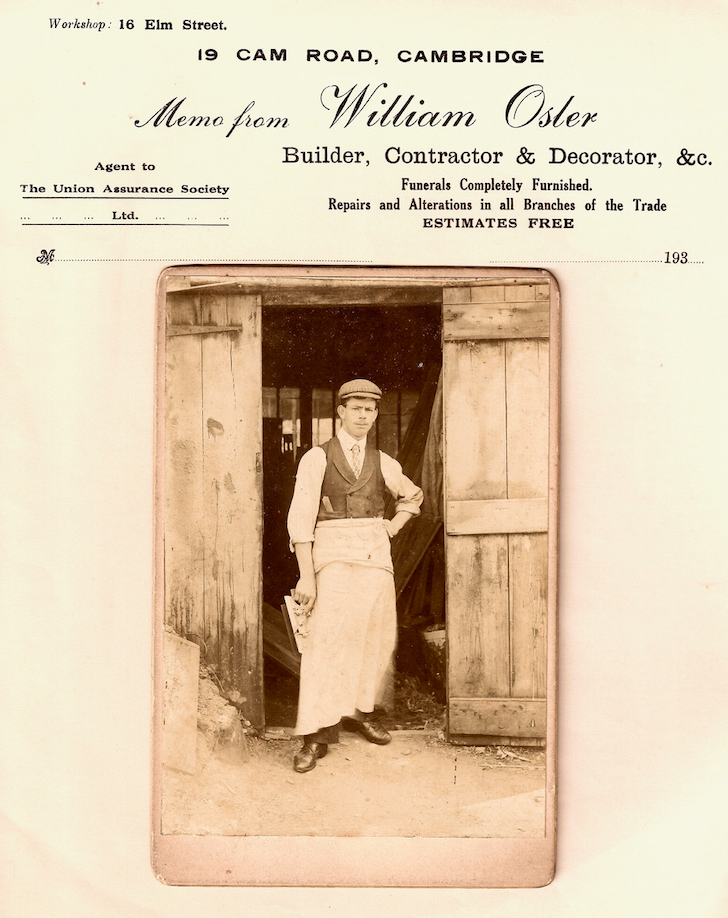 Workshop: 16 Elm Street.
19 CAM ROAD, CAMBRIDGE
Memo from William Osler
Builder, Contractor & Decorator, &c.
Agent to
The Union Assurance Society
... ... ... Ltd. ... ... ...
Funerals Completely Furnished.
Repairs and Alterations in all Branches of the Trade
ESTIMATES FREE
M 193